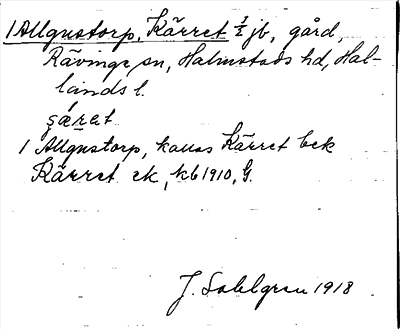 1 Allgustorp, Kärret 1/2 jb, gård,
Rävinge sn, Halmstads hd, Hal-
lands l.
ʂǽrət
1 Allgustorp, kallas Kärret bek
Kärret ek, kb 1910, G.
J. Sahlgren 1918